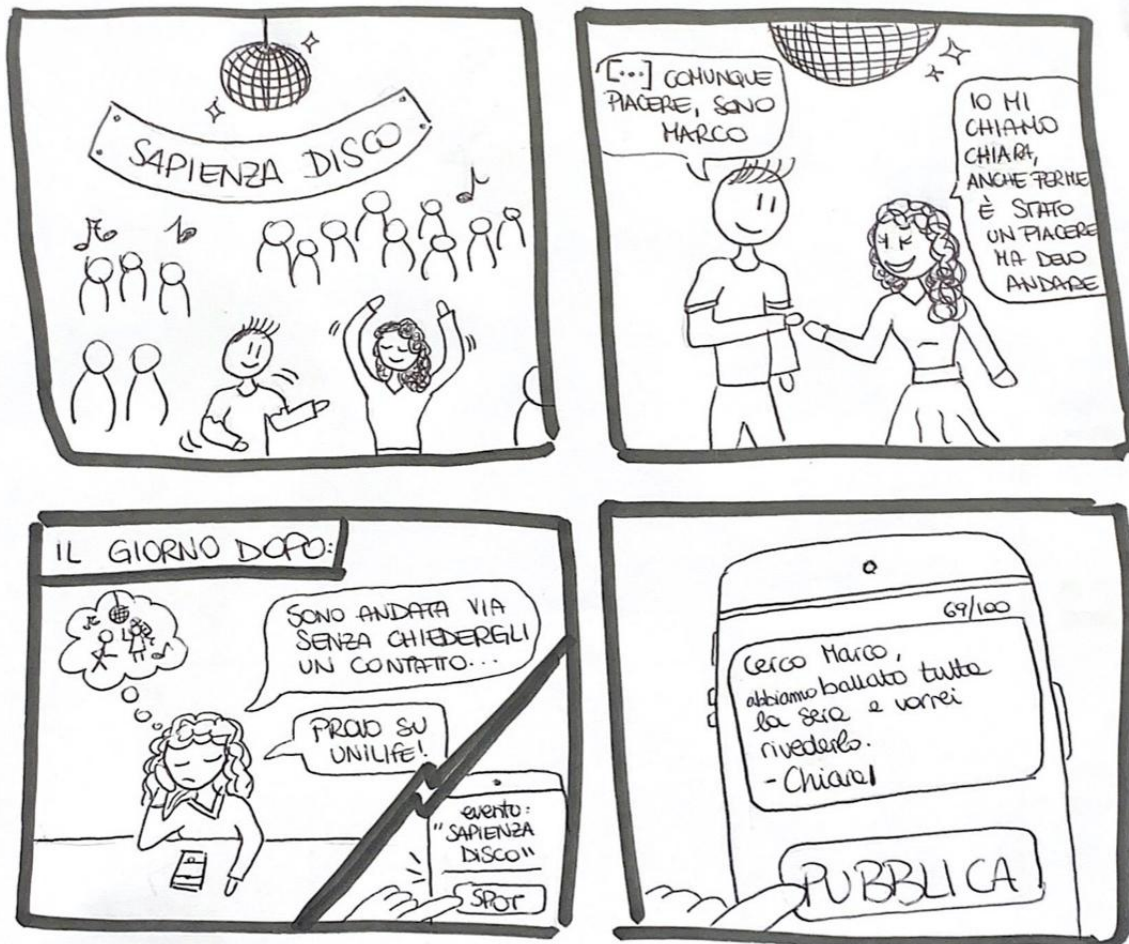 SAPIENZA DISCO
[...] COMUNQUE
PIACERE, SONO
MARCO
IO MI
CHIAMO
CHIARA,
ANCHE PER ME
È STATO
UN PIACERE
MA DEVO
ANDARE
IL GIORNO DOPO:
SONO ANDATA VIA
SENZA CHIEDERGLI
UN CONTATTO...
PROVO SU
UNILIFE!
evento:
"SAPIENZA
DISCO"
SPOT
69/100
Cerco Marco,
abbiamo ballato tutta
la sera e vorrei
rivederlo.
- Chiara
PUBBLICA